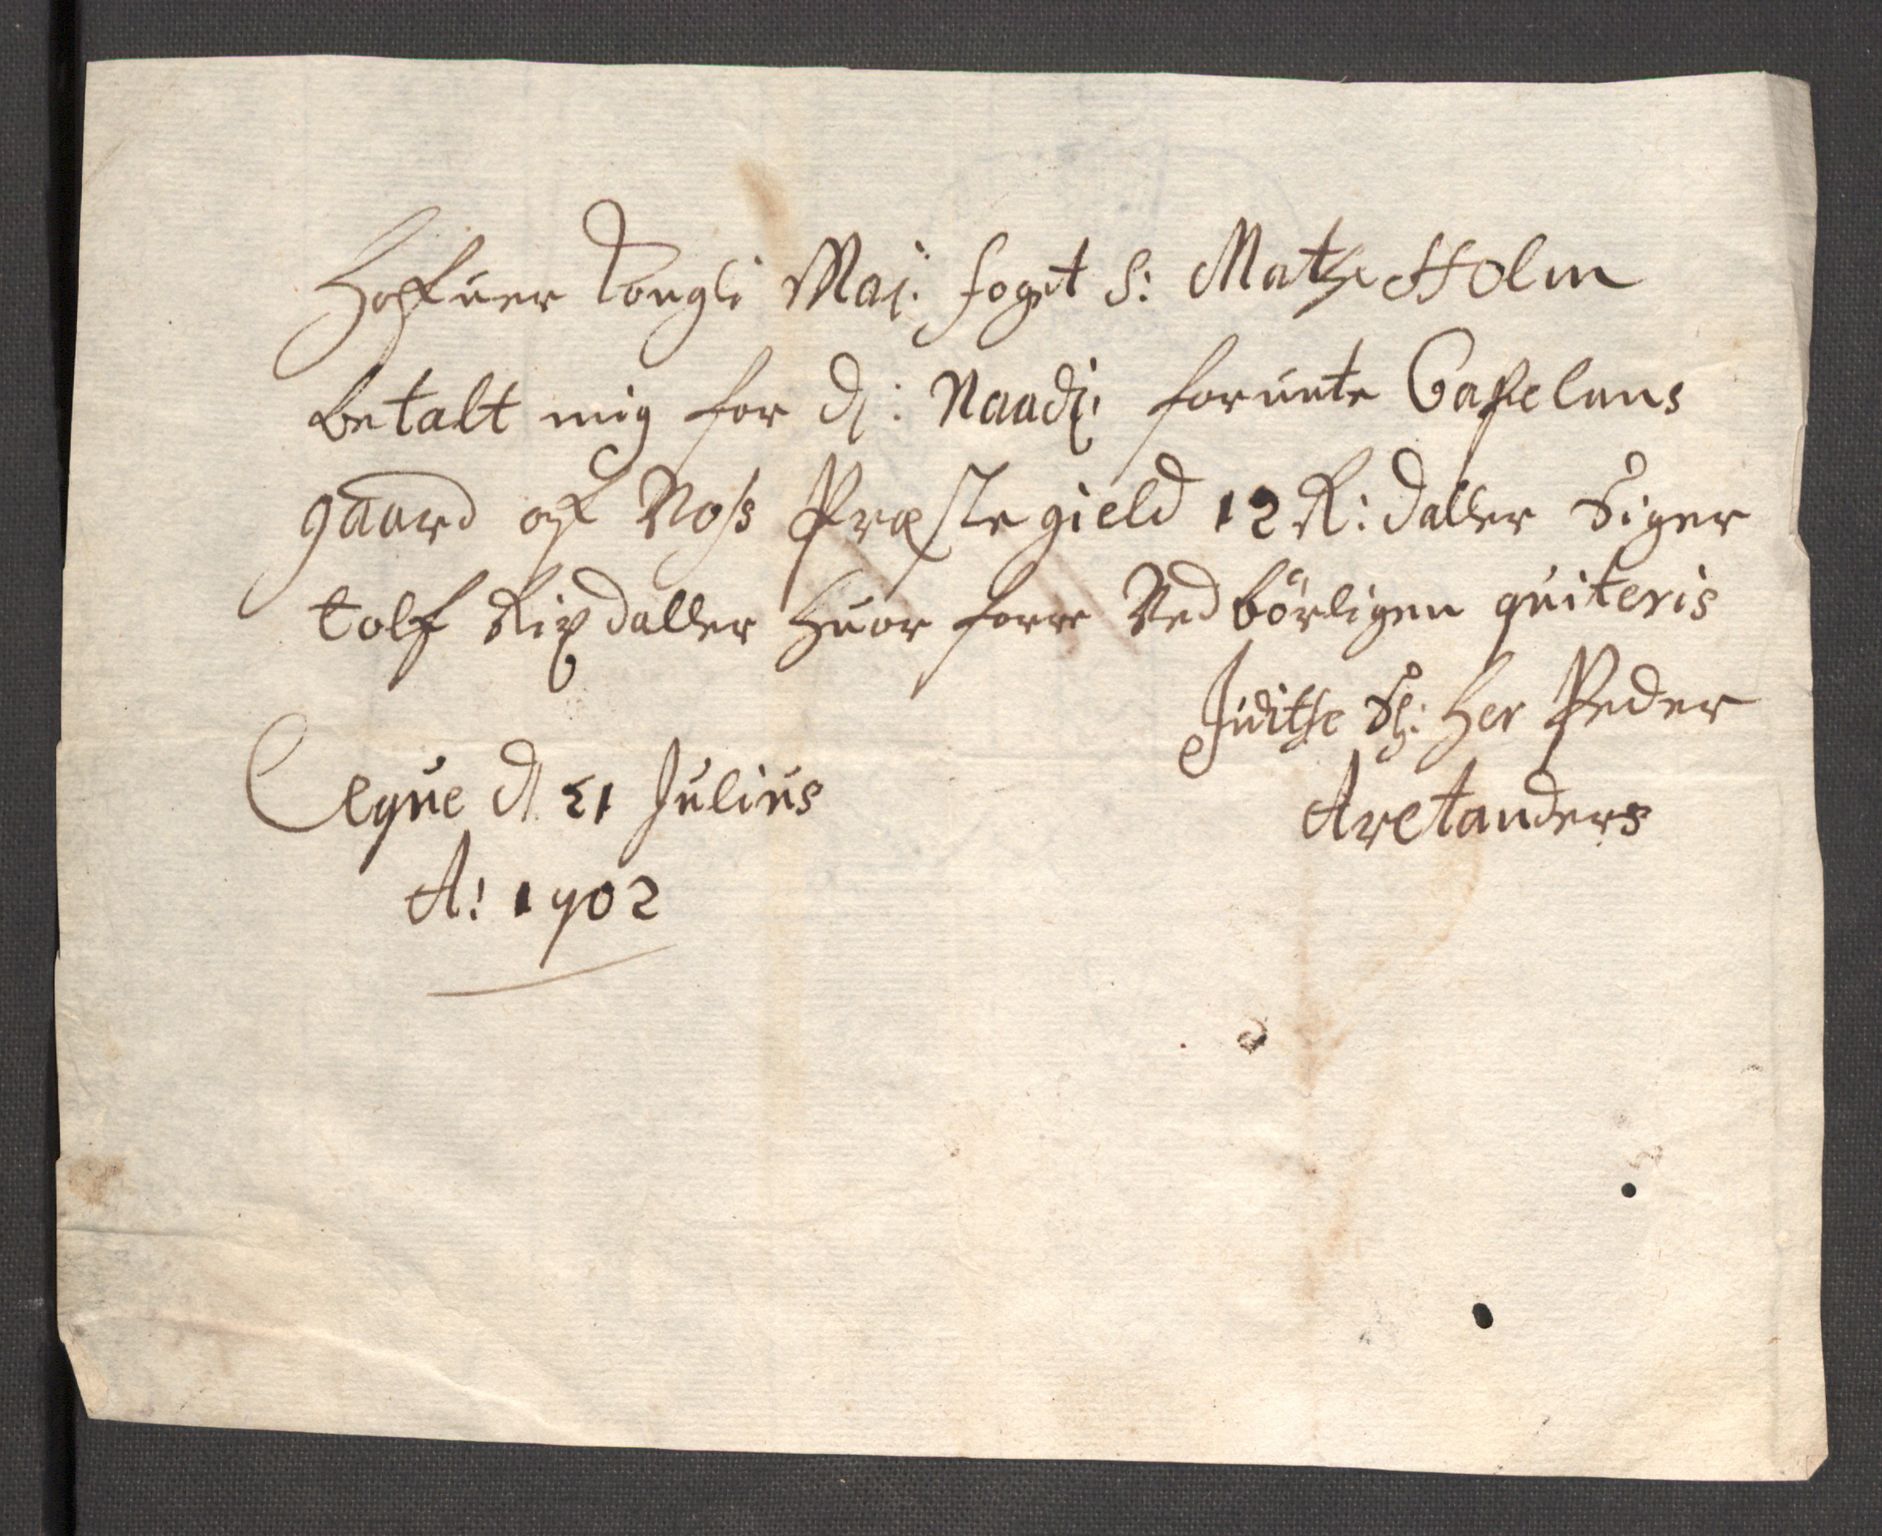 Hafuer Kongli Maj: foget S: Mats Holm
betalt mig for dj: Naadz: forunte Capelans
gaard af Woss Præstegield 12 R: daller Siger
tolf Rixdaller Huor forre Ved börligen quiteris
Jidithe Sl: Her Peder
Aretanders
Eque d 21 Julius
A: 1702